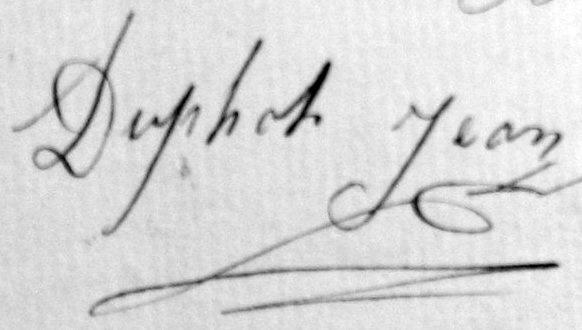 Duphot Jean